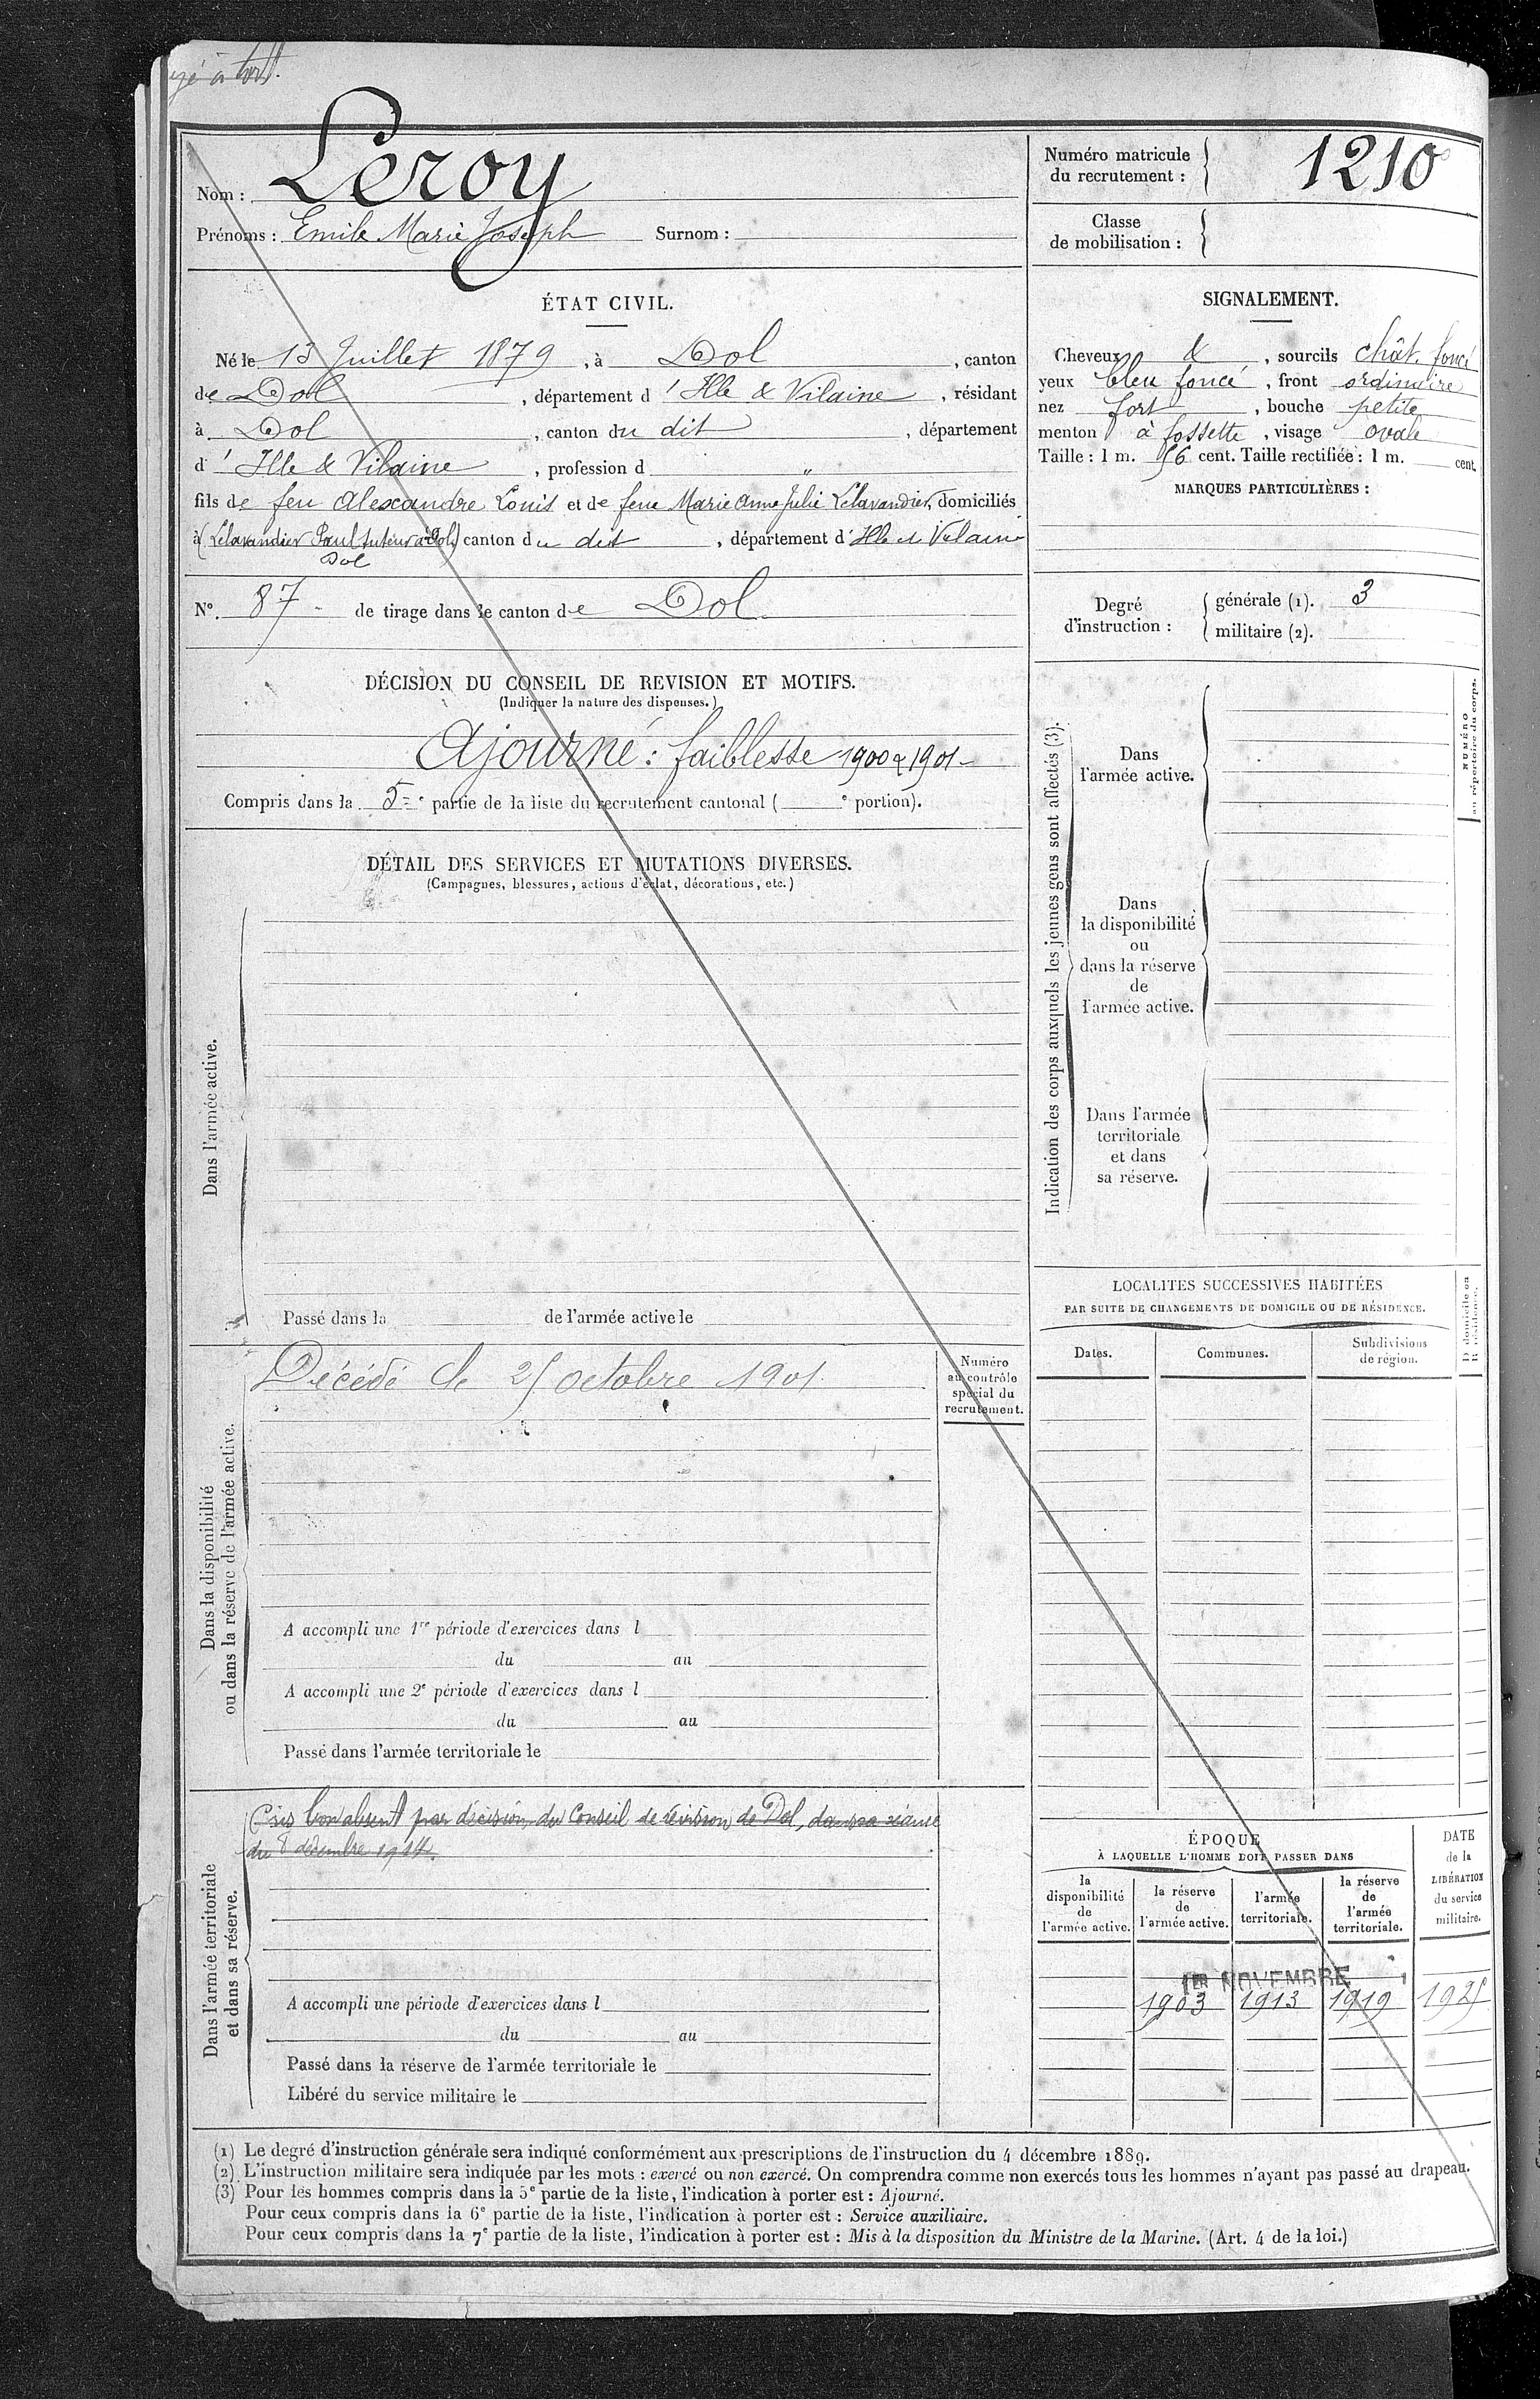 à tort.
Nom : Leroy
Prénoms : Emile Marie Joseph Surnom :
ÉTAT CIVIL.
Né le 13 Juillet 1879, à Dol, canton
de Dol, département d'Ille & Vilaine, résidant
à Dol, canton du dit, département
d'Ille & Vilaine, profession d "
fils de feu Alexandre Louis et de feue Marie Anne Julie Lelavandier, domiciliés
à (Lelavandier Paul tuteur à Dol) canton du dit, département d'Ille et Vilaine
Dol
N°. 87 de tirage dans le canton de Dol
DÉCISION DU CONSEIL DE REVISION ET MOTIFS.
(Indiquer la nature des dispenses.)
Ajourné : faiblesse 1900 & 1901
Compris dans la 5e partie de la liste du recrutement cantonal ( e portion).
DÉTAIL DES SERVICES ET MUTATIONS DIVERSES.
(Campagnes, blessures, actions d'éclat, décorations, etc.)
Dans l'armée active.
Passé dans la de l'armée active le
Dans la disponibilité
ou dans la réserve de l'armée active.
Décédé le 25 octobre 1901
Numéro
au contrôle
spécial du
recrutement.
A accompli une 1re période d'exercices dans l
du au
A accompli une 2e période d'exercices dans l
du au
Passé dans l'armée territoriale le
Dans l'armée territoriale
et dans sa réserve.
Pris bon absent par décision du Conseil de révision de Dol, dans sa séance
du 8 décembre 1914.
A accompli une période d'exercices dans l
du au
Passé dans la réserve de l'armée territoriale le
Libéré du service militaire le
Numéro matricule
du recrutement : 1210
Classe
de mobilisation :
SIGNALEMENT.
Cheveux &, sourcils chât. foncé
yeux bleu foncé, front ordinaire
nez fort, bouche petite
menton à fossette, visage ovale
Taille : 1 m. 56 cent. Taille rectifiée : 1 m. cent.
MARQUES PARTICULIÈRES :
Degré
d'instruction :
générale (1). 3
militaire (2).
Indication des corps auxquels les jeunes gens sont affectés (3).
NUMÉRO
au répertoire du corps.
Dans
l'armée active.
Dans
la disponibilité
ou
dans la réserve
de
l'armée active.
Dans l'armée
territoriale
et dans
sa réserve.
LOCALITÉS SUCCESSIVES HABITÉES
PAR SUITE DE CHANGEMENTS DE DOMICILE OU DE RÉSIDENCE.
Dates. Communes. Subdivisions
de région.
D domicile ou
R résidence.
ÉPOQUE
À LAQUELLE L'HOMME DOIT PASSER DANS
la
disponibilité
de
l'armée active.
la réserve
de
l'armée active.
l'armée
territoriale.
la réserve
de
l'armée
territoriale.
DATE
de la
LIBÉRATION
du service
militaire.
1ER NOVEMBRE
1903 1913 1919 1925
(1) Le degré d'instruction générale sera indiqué conformément aux prescriptions de l'instruction du 4 décembre 1889.
(2) L'instruction militaire sera indiquée par les mots : exercé ou non exercé. On comprendra comme non exercés tous les hommes n'ayant pas passé au drapeau.
(3) Pour les hommes compris dans la 5e partie de la liste, l'indication à porter est : Ajourné.
Pour ceux compris dans la 6e partie de la liste, l'indication à porter est : Service auxiliaire.
Pour ceux compris dans la 7e partie de la liste, l'indication à porter est : Mis à la disposition du Ministre de la Marine. (Art. 4 de la loi.)